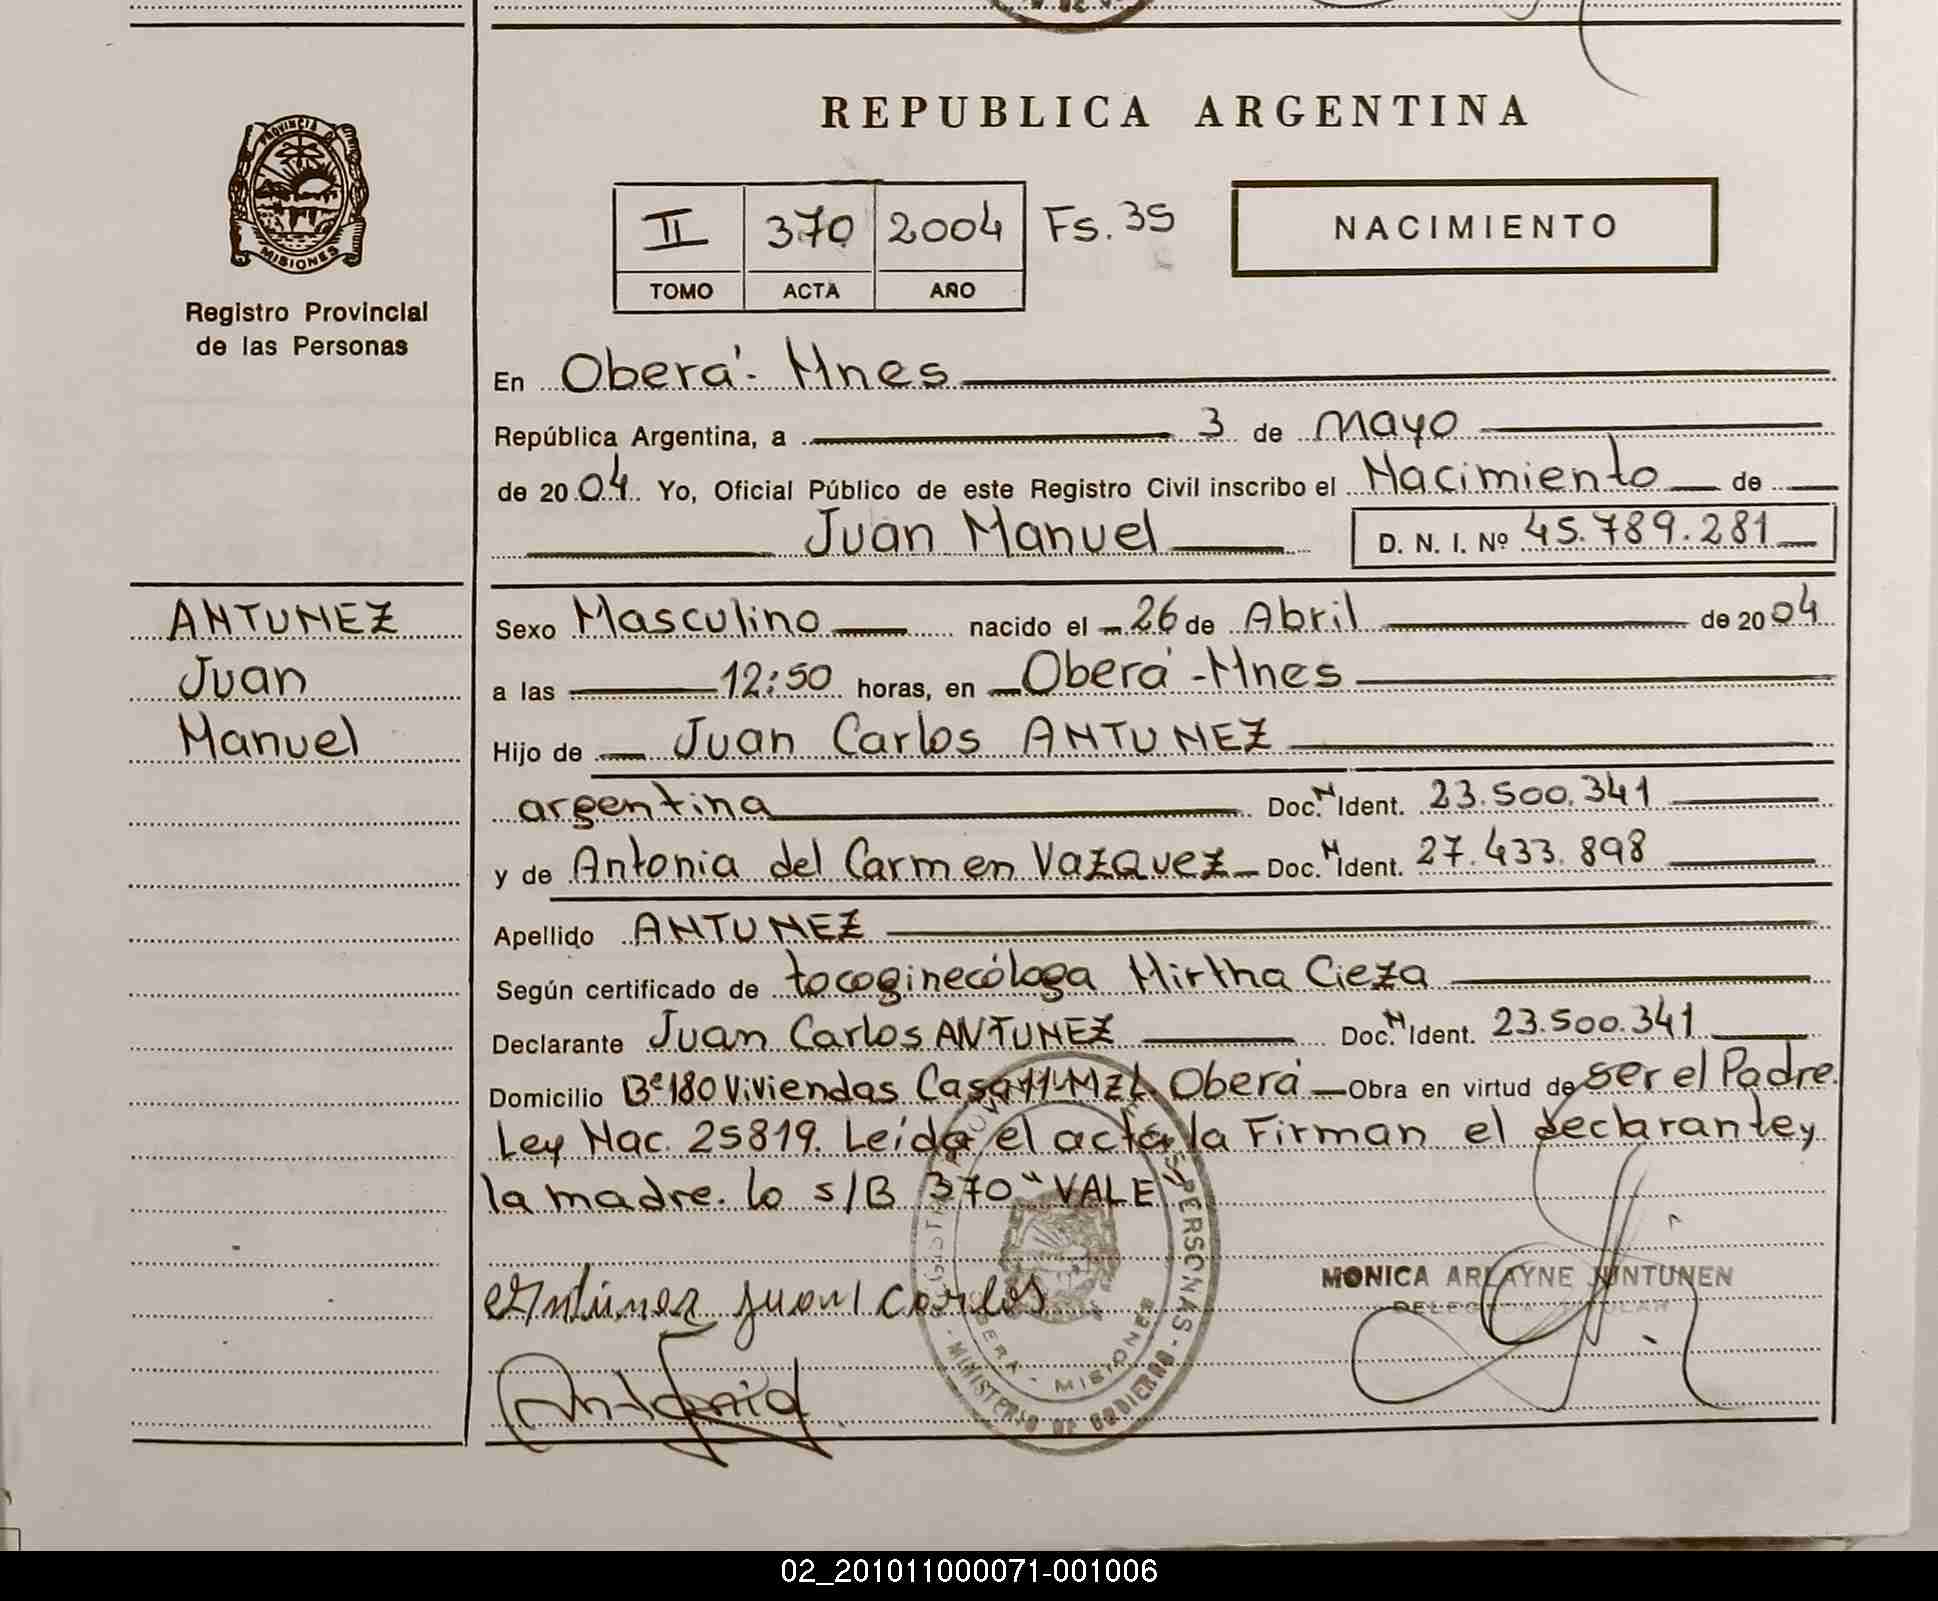 REPUBLICA ARGENTINA
PROVINCIA DE
MISIONES
Registro Provincial
de las Personas
II 370 2004 Fs. 35
TOMO ACTA AÑO
NACIMIENTO
En Oberá - Mnes
República Argentina, a 3 de Mayo
de 2004 Yo, Oficial Público de este Registro Civil inscribo el Nacimiento de
Juan Manuel D. N. I. Nº 45.789.281
ANTUNEZ
Juan
Manuel
Sexo Masculino nacido el 26 de Abril de 2004
a las 12:50 horas, en Oberá - Mnes
Hijo de Juan Carlos ANTUNEZ
argentina Doc. N Ident. 23.500.341
y de Antonia del Carmen Vazquez Doc. N Ident. 27.433.898
Apellido ANTUNEZ
Según certificado de tocoginecóloga Mirtha Cieza
Declarante Juan Carlos ANTUNEZ Doc. N Ident. 23.500.341
Domicilio Bº 180 Viviendas Casa 11 Mz L Oberá Obra en virtud de ser el Padre.
Ley Nac. 25819. Leída el acta la Firman el declarante y
la madre. lo s/B 370 "VALE"
Antunez Juan Carlos
Antonia
MONICA ARLAYNE JUNTUNEN
DELEGADA TITULAR
PERSONAS - MINISTERIO DE GOBIERNO -
OBERA - MISIONES
02_201011000071-001006